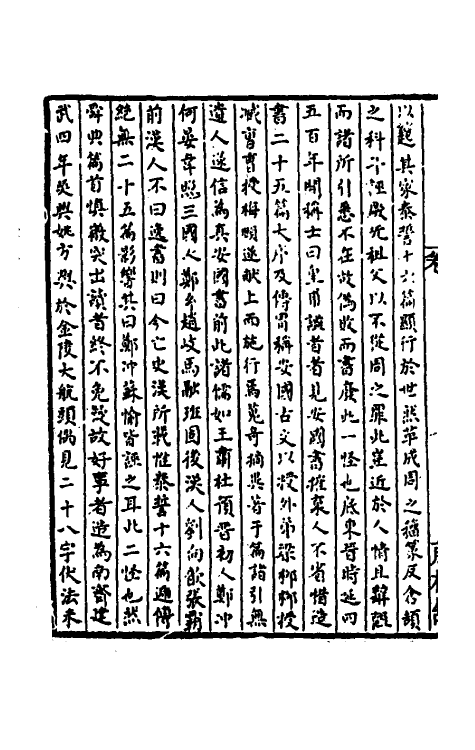 以題其家泰誓十六篇顯行於世然革成周之穢藁反含頡
之科斗誣厥先祖父以不從周之罪此窒近於人情且辭
而諸所引悉不在故偽敗而書廢此一怪也底東晉時延四
五百年間稱士曰皇甫謐者首見安國書摧衆人不省惜造
書二十五篇大序及傳冒稱安國古文以授外弟梁柳柳授
臧曹曹授梅頤遂献上而施行焉蒐奇摘異若于篇諸引無
遺人遂信為真安國書前此諸儒如王肅杜預晉初人鄭冲
何晏韋昭三國人鄭玄趙岐馬融班固後漢人劉向歆張覇
前漢人不曰逸書則曰今亡史漢所載惟泰誓十六篇逸傳
絶無二十五篇影響其曰鄭冲蘇愉皆誣之耳此二怪也然
舜典篇首慎徽突出讀者終不免疑故好事者造為南齊建
武四年吳興姚方興於金陵大航頭偶見二十八字伏法未